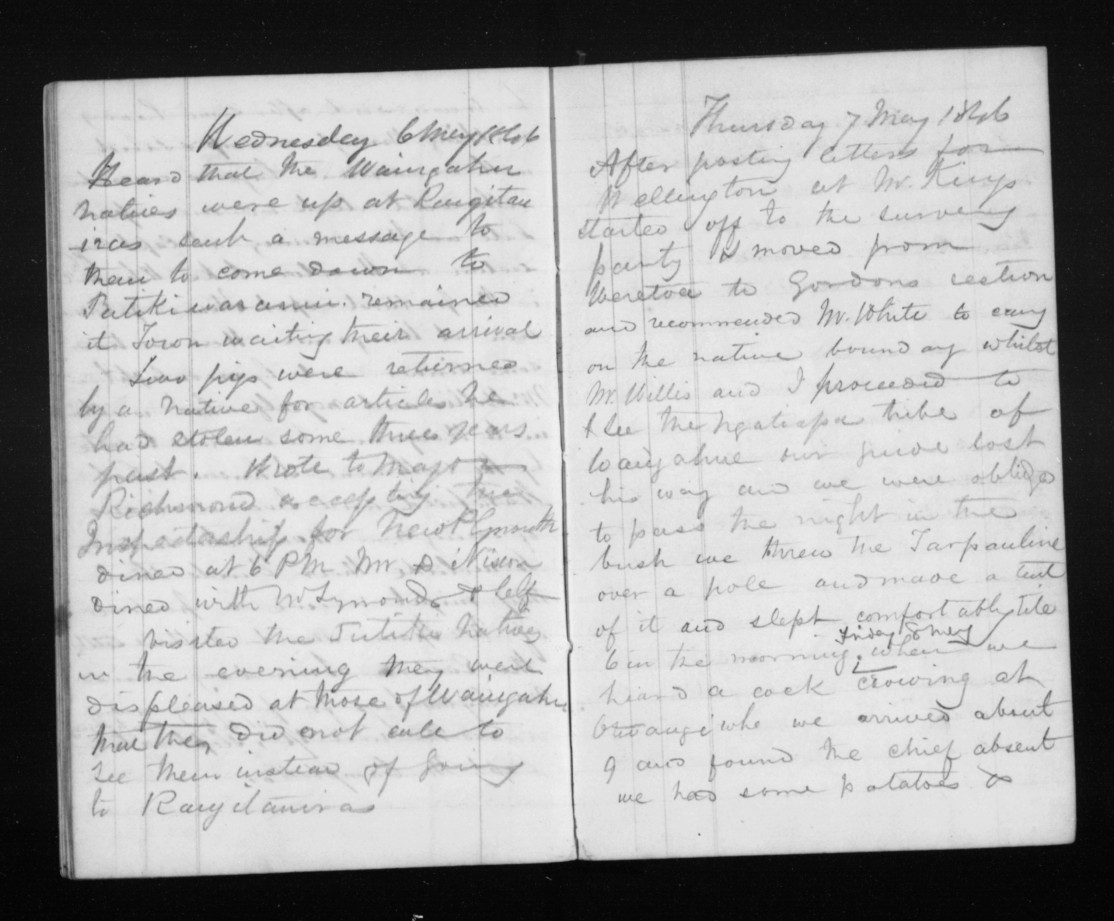 Wednesday 6 May 1846
Heard that the Waingahu
natives were up at Rangitau
iras sent a message to
them to come down to
Putiki waranui. remained
it Town waiting their arrival
Two pigs were returned
by a native for articles he
had stolen some three years
past. Wrote to Major
Richmond accepting the
Inspectorship for New Plymouth
dined at 6 PM Mr D Nixon
dined with W Symonds & self
visited the Putiki natives
in the evening they were
displeased at those of Waingahu
that they did not call to
see them instead of going
to Rangitauira
Thursday 7 May 1846
After posting letters for
Wellington at Mr. Kings
started off to the surveying
party & moved from
Weretoa to Gordons section
and recommended Mr. White to carry
on the native boundary whilst
Mr. Willis and I proceeded to
& see the Ngatiapa tribe of
our guide lost
his way and we were obliged
to pass the night in the
bush we threw the Tarpauline
over a pole and made a tent
of it and slept comfortably till
6 in the morning. Friday 8 May when we
heard a cock crowing at
we arrived about
9 and found the chief absent
we had some potatoes &